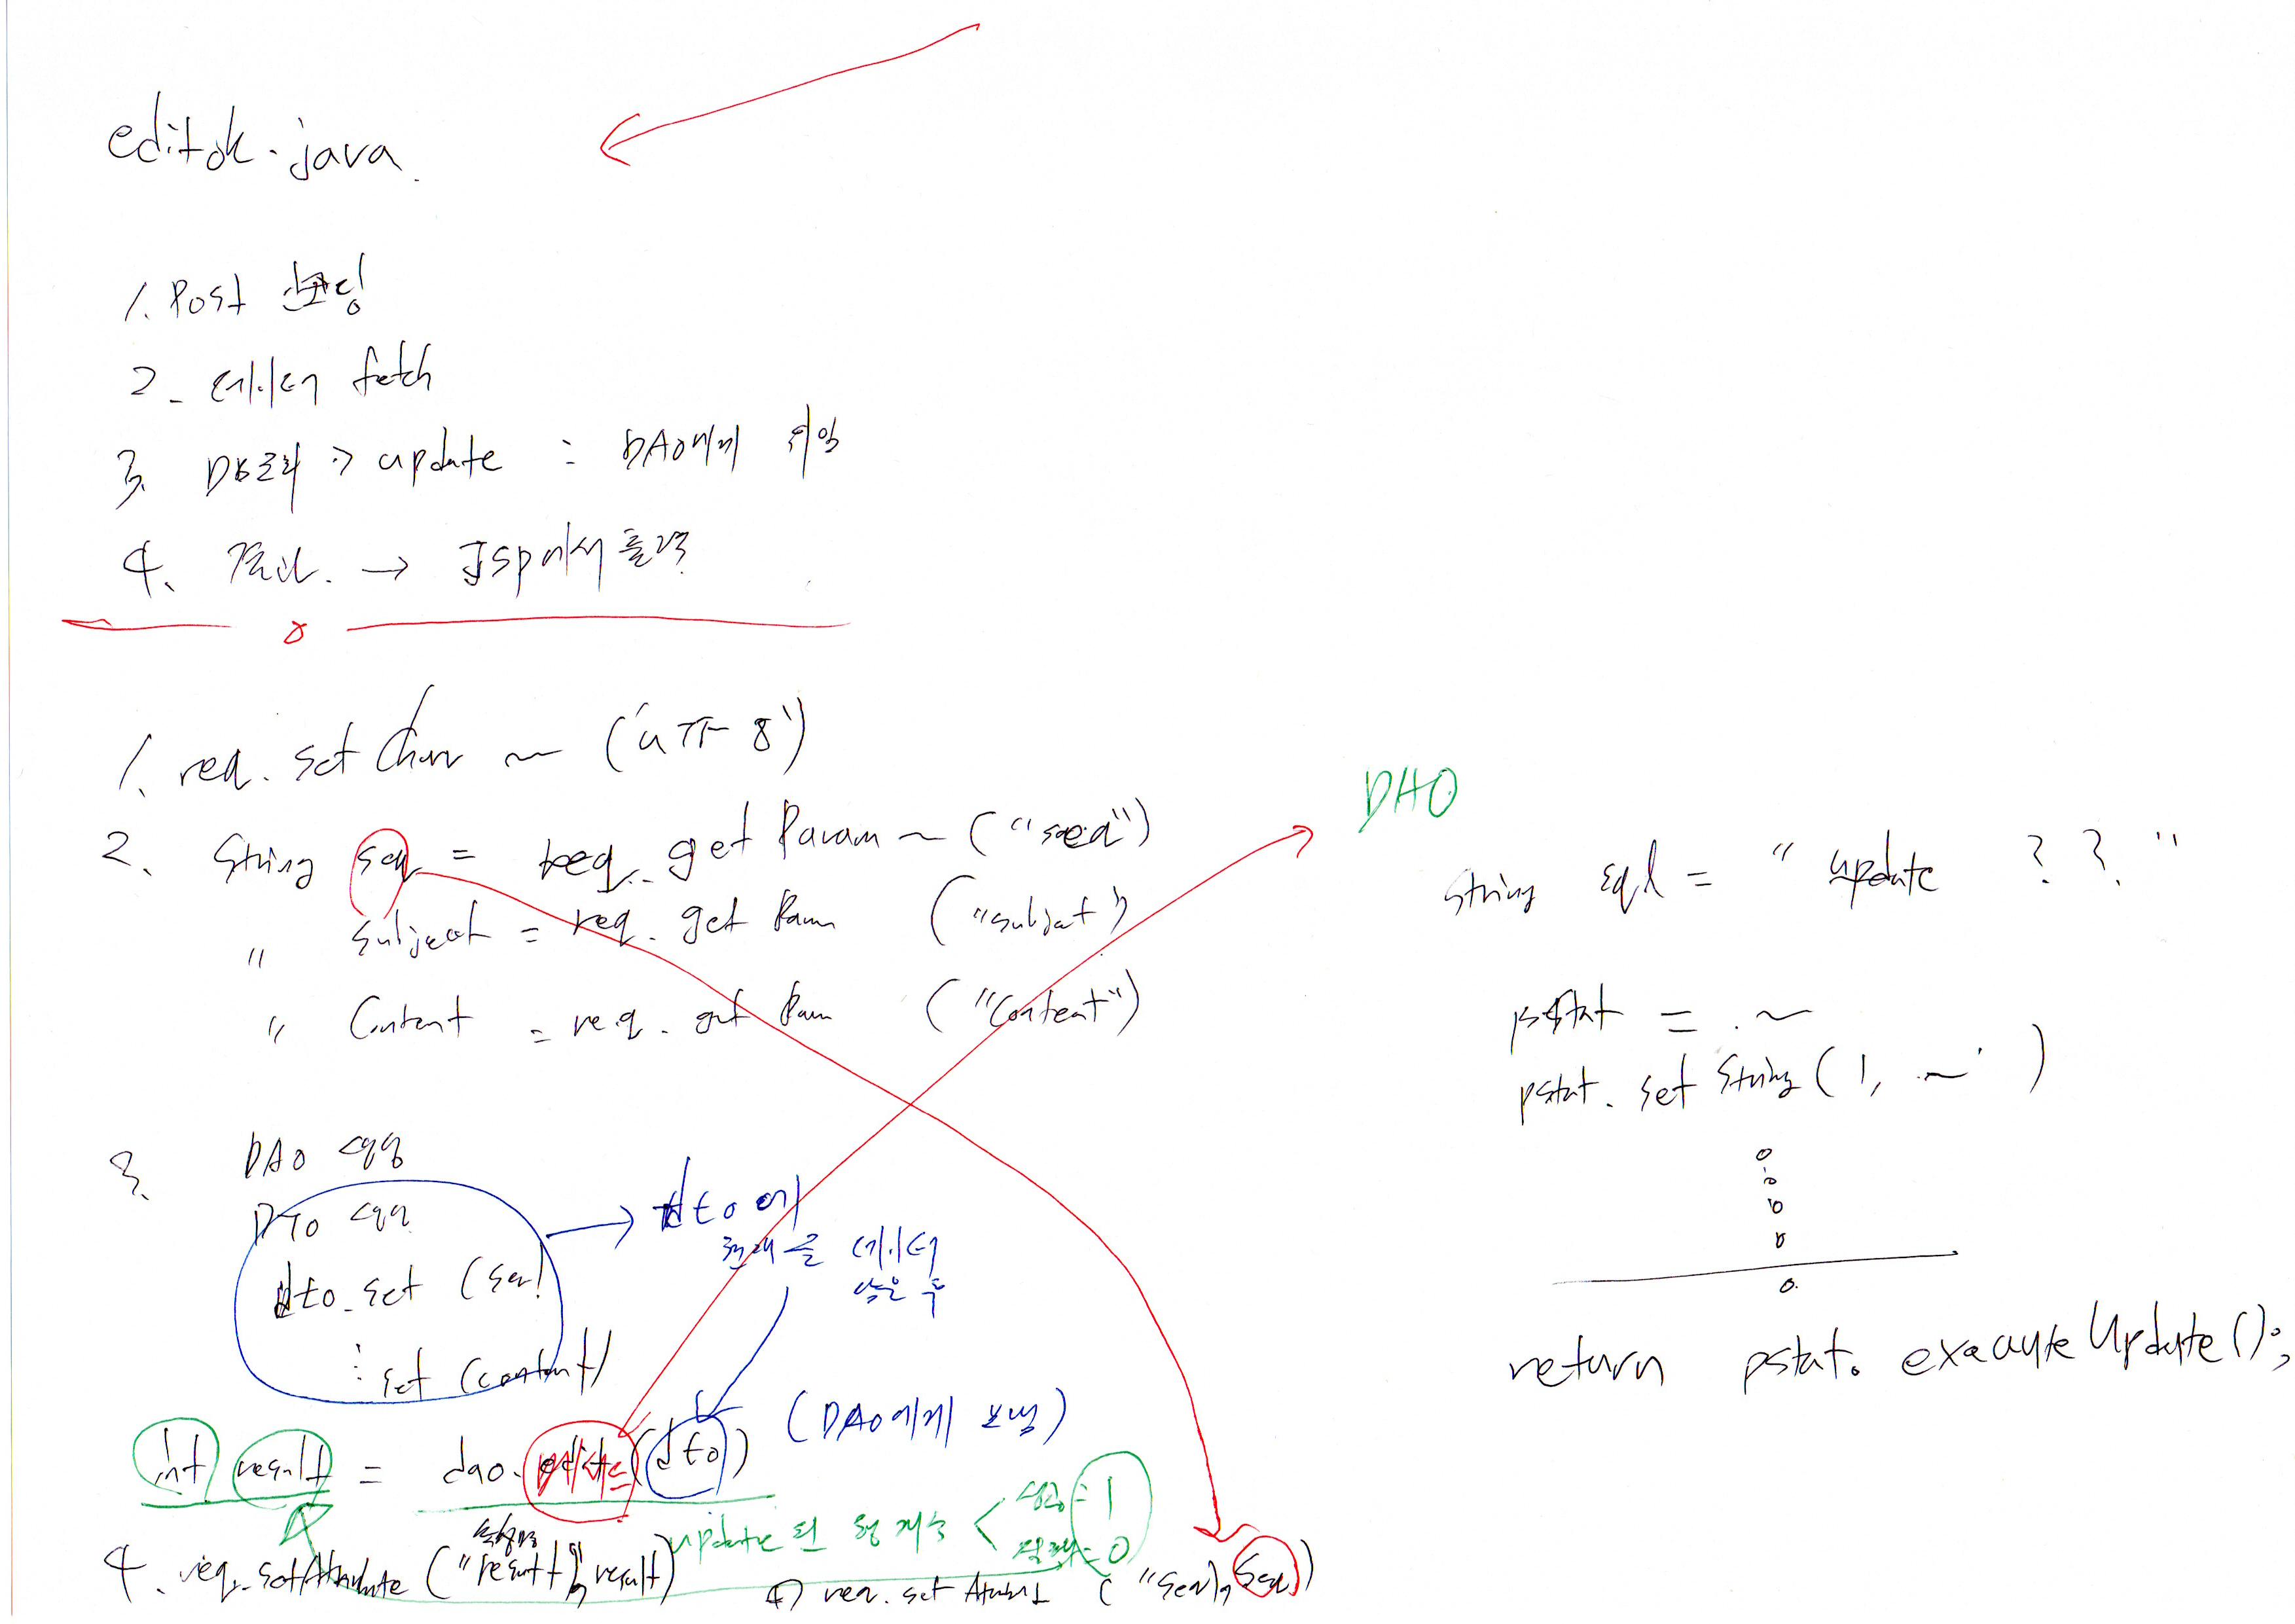 editok.java.
1. Post 인코딩
2. 데이터 fetch
3. DB로직 → update : DAO에게 위임
4. 결과. → JSP에서 출력
1. req. set Char ~ ("UTF 8")
2. String seq = req. get Param ~ ("seq")
" subject = req. get Param ("subject")
" Content = req. get Param ("Content")
3. DAO 생성
DTO 생성
dto. set (seq)
: set (content)
dto에
데이터
담은 후
int result = dao. (dto) (DAO에게 보냄)
update 된 행 개수 < 성공 = 1
실패 = 0
4. req. setAttribute ("result", result)
4) req. set Attribut ("seq", seq)
DAO
String sql = " update ? ? "
pstat = . ~
pstat. set String (1, ~ )
return pstat. executeUpdate();